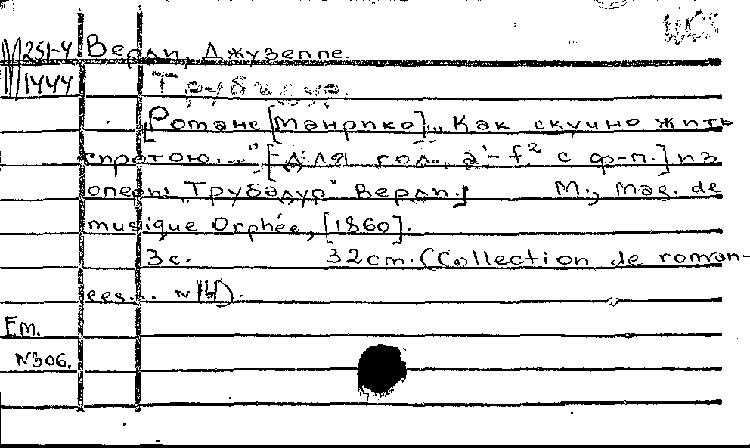 М 251-4 Верди, Джузеппе.
1444 Трубадур.
[Романс [Манрико] „Как скучно жить
сиротою..." [Для гол. a¹-f² с ф-п.] из
оперы „Трубадур" Верди.] М., Mag. de
musique Orphée, [1860].
3 с. 32 cm. (Collection de roman-
ces... №14).
Em.
№306.